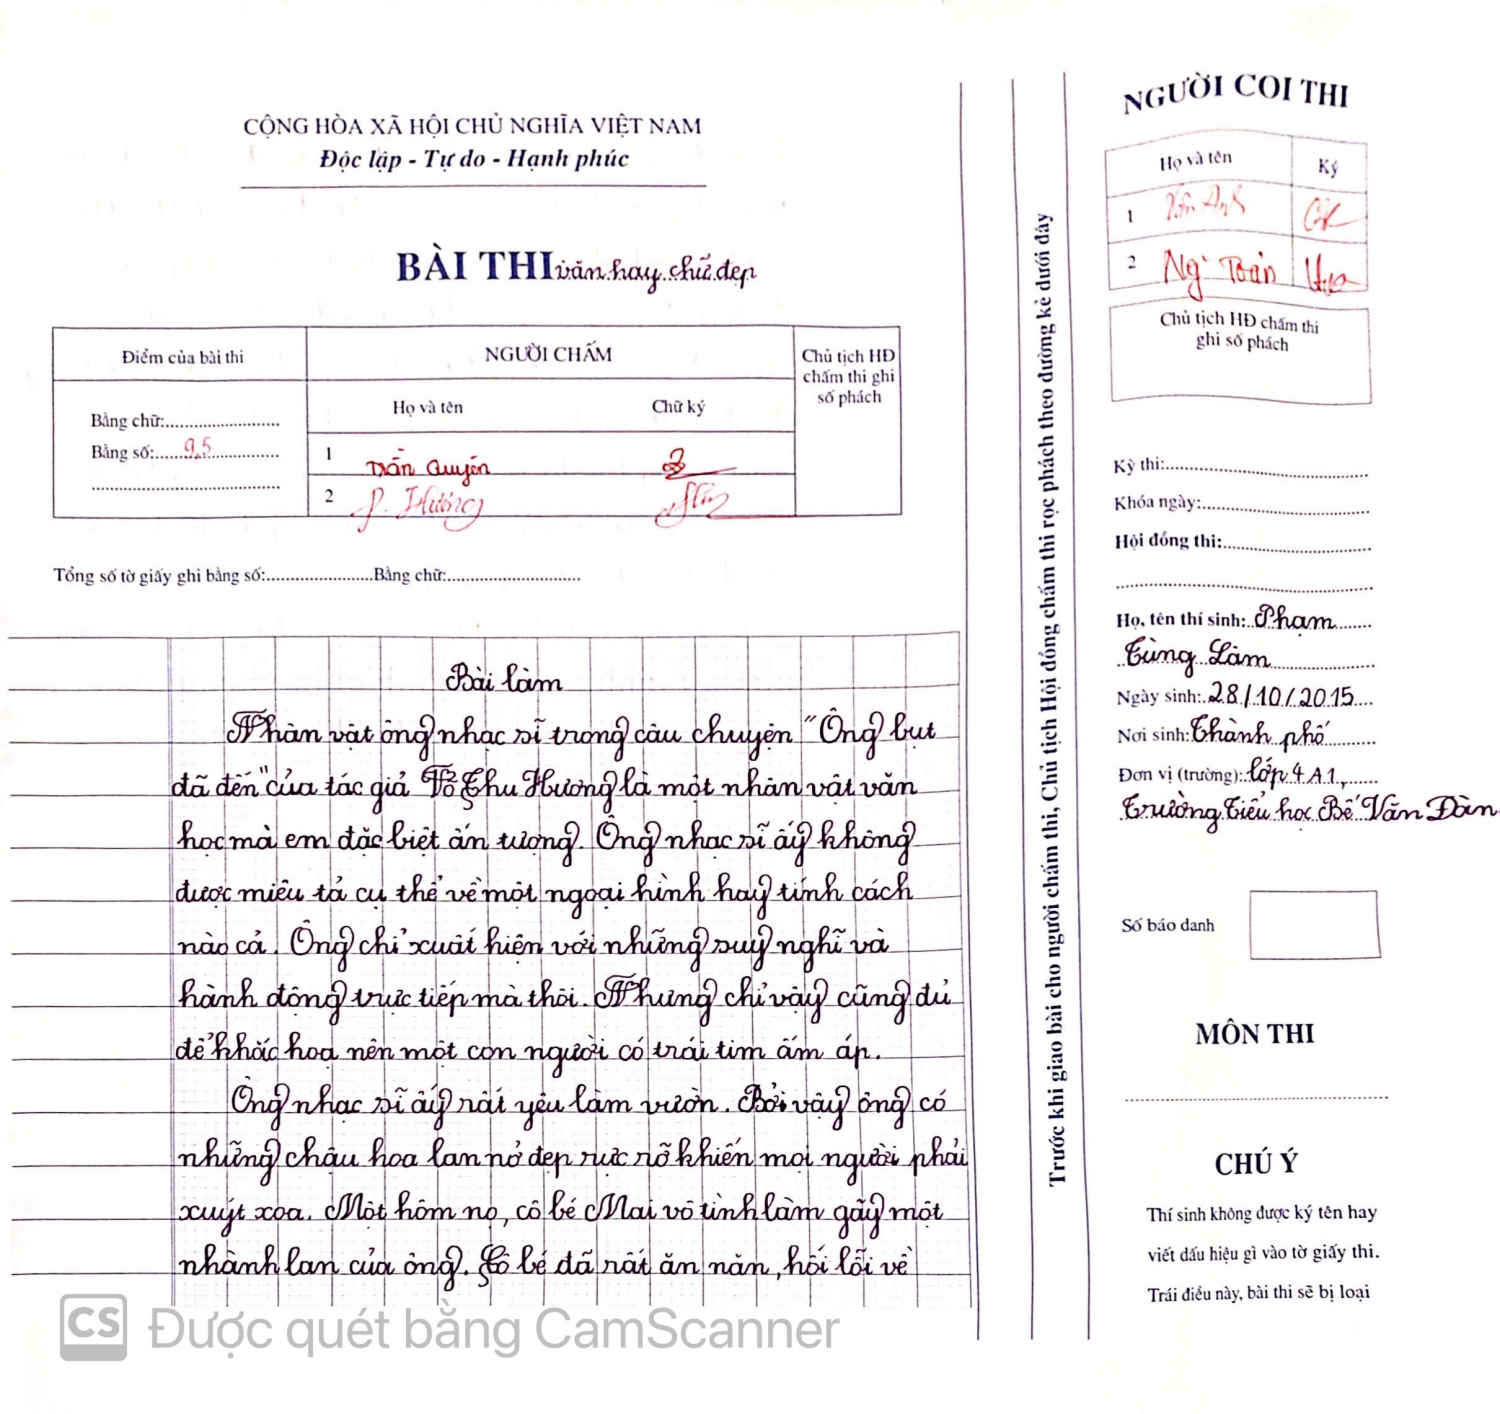 CỘNG HÒA XÃ HỘI CHỦ NGHĨA VIỆT NAM
Độc lập - Tự do - Hạnh phúc
BÀI THI văn hay chữ đẹp
Điểm của bài thi
NGƯỜI CHẤM
Chủ tịch HĐ
chấm thi ghi
số phách
Họ và tên
Chữ ký
Bằng chữ:
Bằng số: 9,5
1 Trần Quyên
2 P. Hương
Tổng số tờ giấy ghi bằng số: Bằng chữ:
Bài làm
Nhân vật ông nhạc sĩ trong câu chuyện "Ông bụt
đã đến" của tác giả Võ Thu Hương là một nhân vật văn
học mà em đặc biệt ấn tượng. Ông nhạc sĩ ấy không
được miêu tả cụ thể về một ngoại hình hay tính cách
nào cả. Ông chỉ xuất hiện với những suy nghĩ và
hành động trực tiếp mà thôi. Nhưng chỉ vậy cũng đủ
để khắc hoạ nên một con người có trái tim ấm áp.
Ông nhạc sĩ ấy rất yêu làm vườn. Bởi vậy ông có
những chậu hoa lan nở đẹp rực rỡ khiến mọi người phải
xuýt xoa. Một hôm nọ, cô bé Mai vô tình làm gãy một
nhành lan của ông. Cô bé đã rất ăn năn, hối lỗi về
Trước khi giao bài cho người chấm thi, Chủ tịch Hội đồng chấm thi rọc phách theo đường kẻ dưới đây
NGƯỜI COI THI
Họ và tên
Ký
1 Vân Anh
2 Ng. Toản
Chủ tịch HĐ chấm thi
ghi số phách
Kỳ thi:
Khóa ngày:
Hội đồng thi:
Họ, tên thí sinh: Phạm
Tùng Lâm
Ngày sinh: 28/10/2015
Nơi sinh: Thành phố
Đơn vị (trường): lớp 4A1,
Trường Tiểu học Bế Văn Đàn
Số báo danh
MÔN THI
CHÚ Ý
Thí sinh không được ký tên hay
viết dấu hiệu gì vào tờ giấy thi.
Trái điều này, bài thi sẽ bị loại
CS Được quét bằng CamScanner